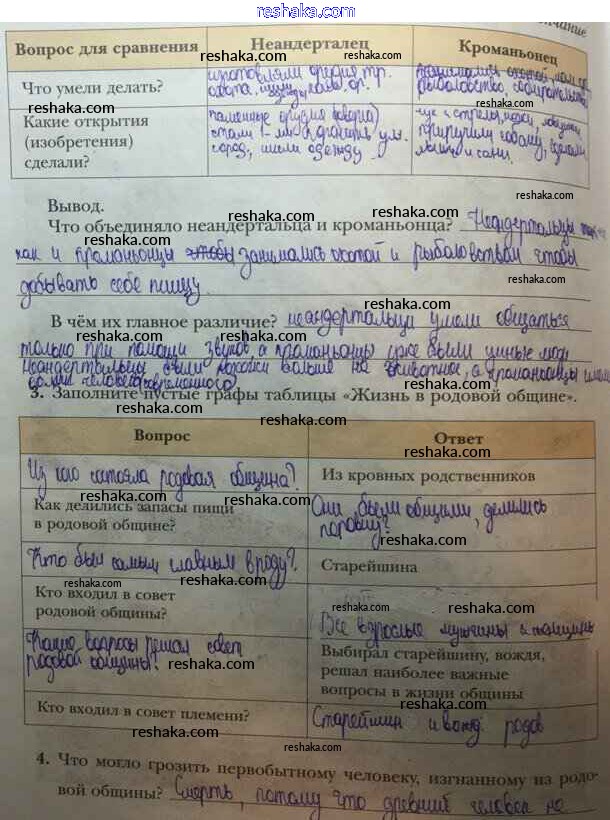 reshaka.com
Окончание
Вопрос для сравнения Неандерталец Кроманьонец
Что умели делать? изготовляли орудия тр. охота,
рыболовство, собирательство
Какие открытия
(изобретения)
сделали?
каменные орудия
город, шили одежду
приручили собаку, сделали
Вывод.
Что объединяло неандертальца и кроманьонца? Неандертальцы так-же
как и кроманьонцы чтобы занимались охотой и рыболовством чтобы
добывать себе пищу
В чём их главное различие? неандертальцы умели общаться
только при помощи звуков, а кроманьонцы уже были умные люди
Неандертальцы были похожи больше на животное, а кроманьонцы имели
облик человека современного
3. Заполните пустые графы таблицы «Жизнь в родовой общине».
Вопрос Ответ
Из кого состояла родовая община? Из кровных родственников
Как делились запасы пищи
в родовой общине?
Они были общими, делились
поровну?
Кто был самым главным в роду? Старейшина
Кто входил в совет
родовой общины?
Все взрослые мужчины и женщины
Какие вопросы решал совет
родовой общины?
Выбирал старейшину, вождя,
решал наиболее важные
вопросы в жизни общины
Кто входил в совет племени? Старейшин и вожд. родов
4. Что могло грозить первобытному человеку, изгнанному из родо-
вой общины? Смерть, потому что древний человек не